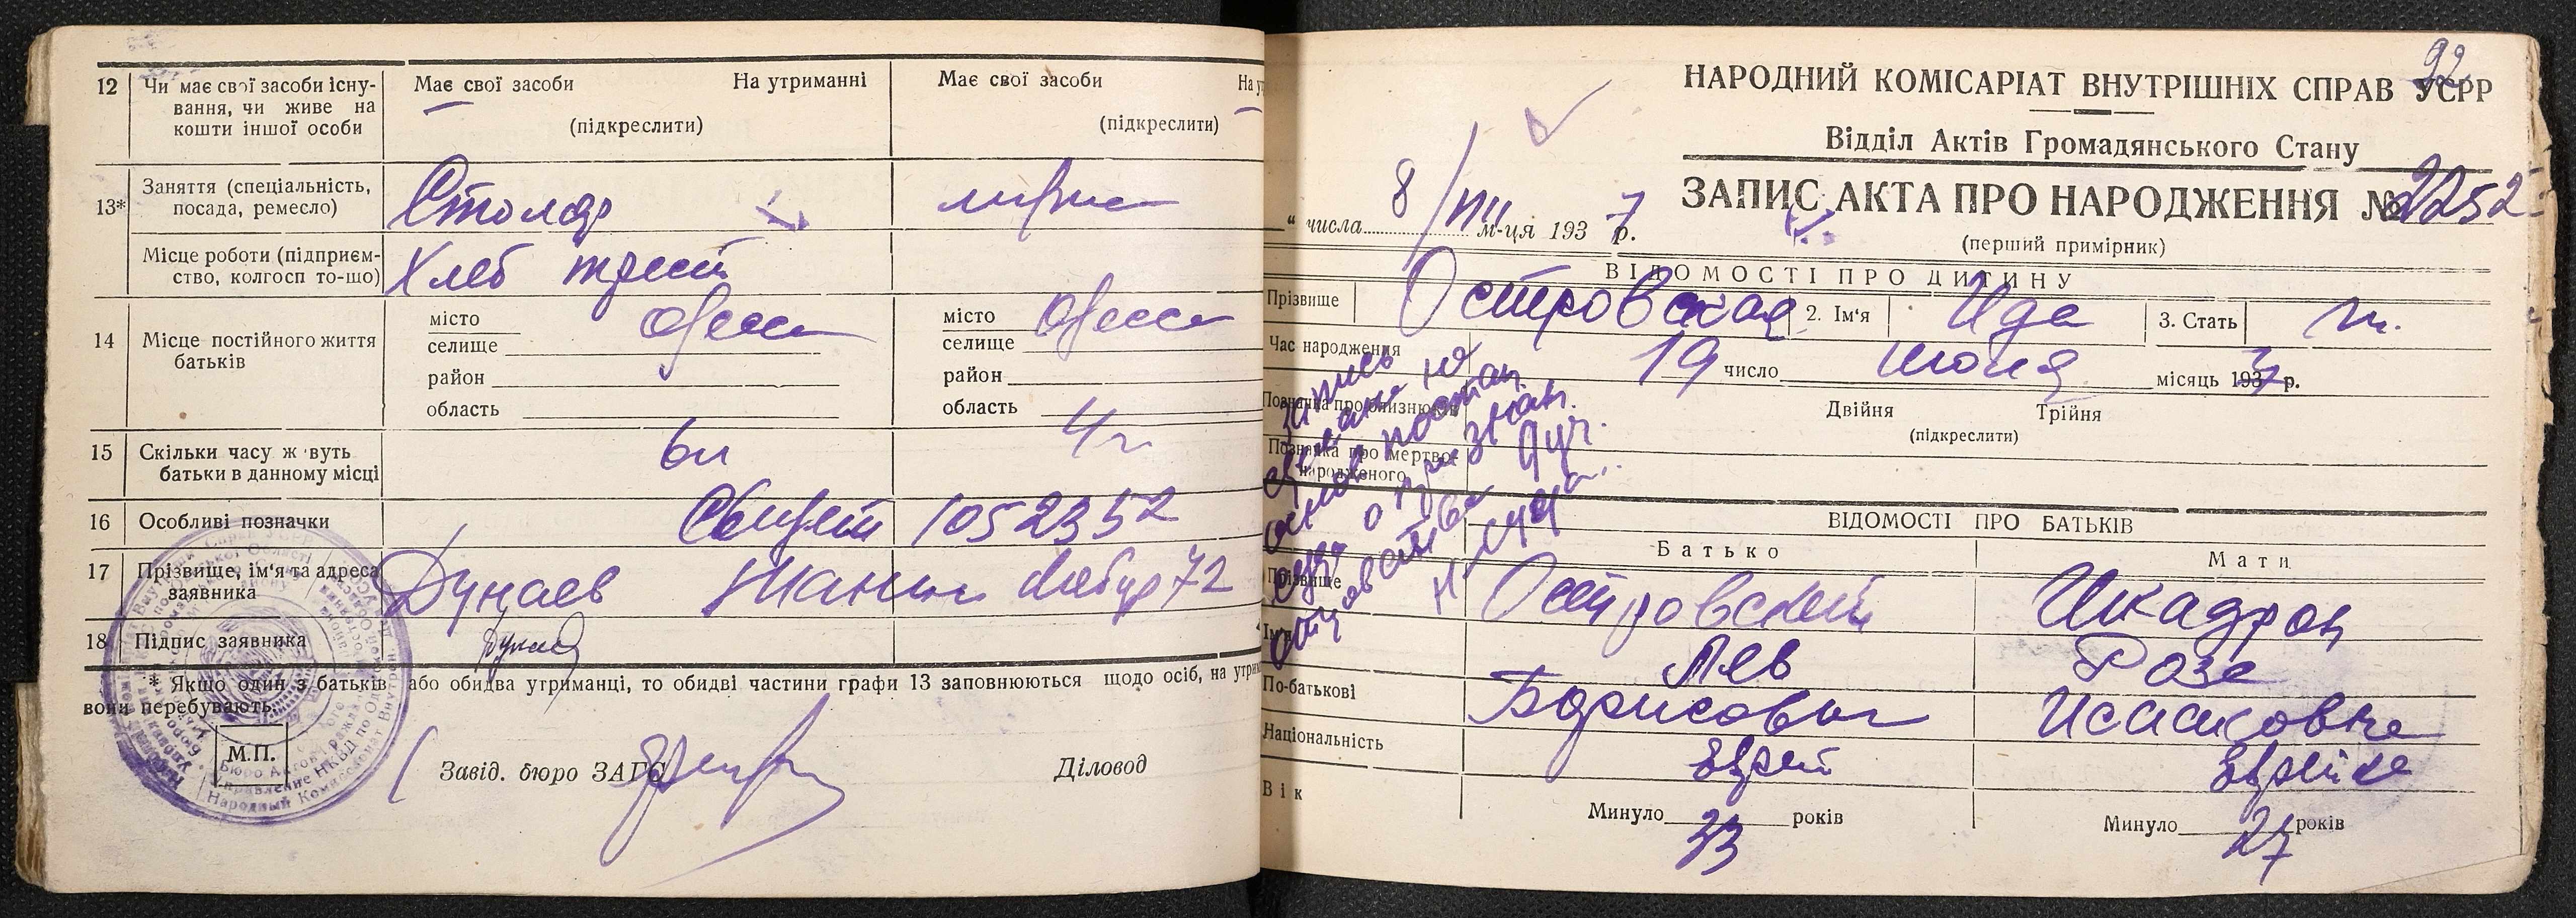 12 Чи має свої засоби існу-
вання, чи живе на
кошти іншої особи
Має свої засоби На утриманні
(підкреслити)
Має свої засоби
(підкреслити)
13* Заняття (спеціальність,
посада, ремесло)
Столяр
Місце роботи (підприєм-
ство, колгосп то-що)
Хлеб трест
14 Місце постійного життя
батьків
місто Одесса
селище
район
область
місто Одесса
селище
район
область
15 Скільки часу ж вуть
батьки в данному місці
6л 4г
16 Особливі позначки
1052352
17 Прізвище, ім'я та адреса
заявника
Дунаев 72
18 Підпис заявника
* Якщо один з батьків або обидва утриманці, то обидві частини графи 13 заповнюються щодо осіб, на
вони перебувають.
М.П.
Завід. бюро ЗАГС Діловод
92
НАРОДНИЙ КОМІСАРІАТ ВНУТРІШНІХ СПРАВ УСРР
Відділ Актів Громадянського Стану
ЗАПИС АКТА ПРО НАРОДЖЕННЯ № 2252
(перший примірник)
" числа 8/VII м-ця 1937 р.
ВІДОМОСТІ ПРО ДИТИНУ
Прізвище Островская 2. Ім'я Ида 3. Стать ж.
Час народження 19 число июня місяць 1937 р.
Позначка про близнюків
Двійня Трійня
(підкреслити)
Позначка про мертво-
народженого
запись
ВІДОМОСТІ ПРО БАТЬКІВ
Батько Мати
Прізвище Островский Шкадрон
Ім'я Лев Роза
По-батькові Борисович Исааковна
Національність Еврей Еврейка
Вік
Минуло 33 років
Минуло 27 років